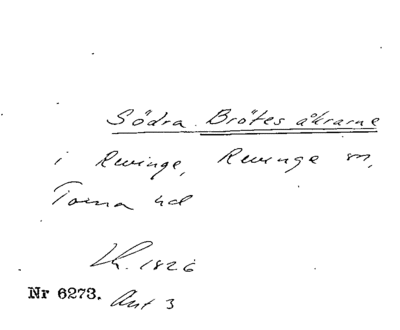 Södra Brötes åkrarne
i Revinge, Revinge sn,
Torna hd
Lh. 1826
Nr 6273. Akt 3